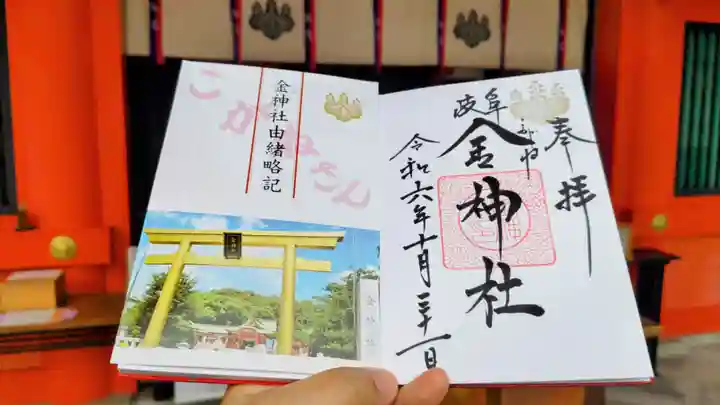 金神社由緒略記
こがねさん
奉拝
岐阜
金神社
令和六年十月三十一日